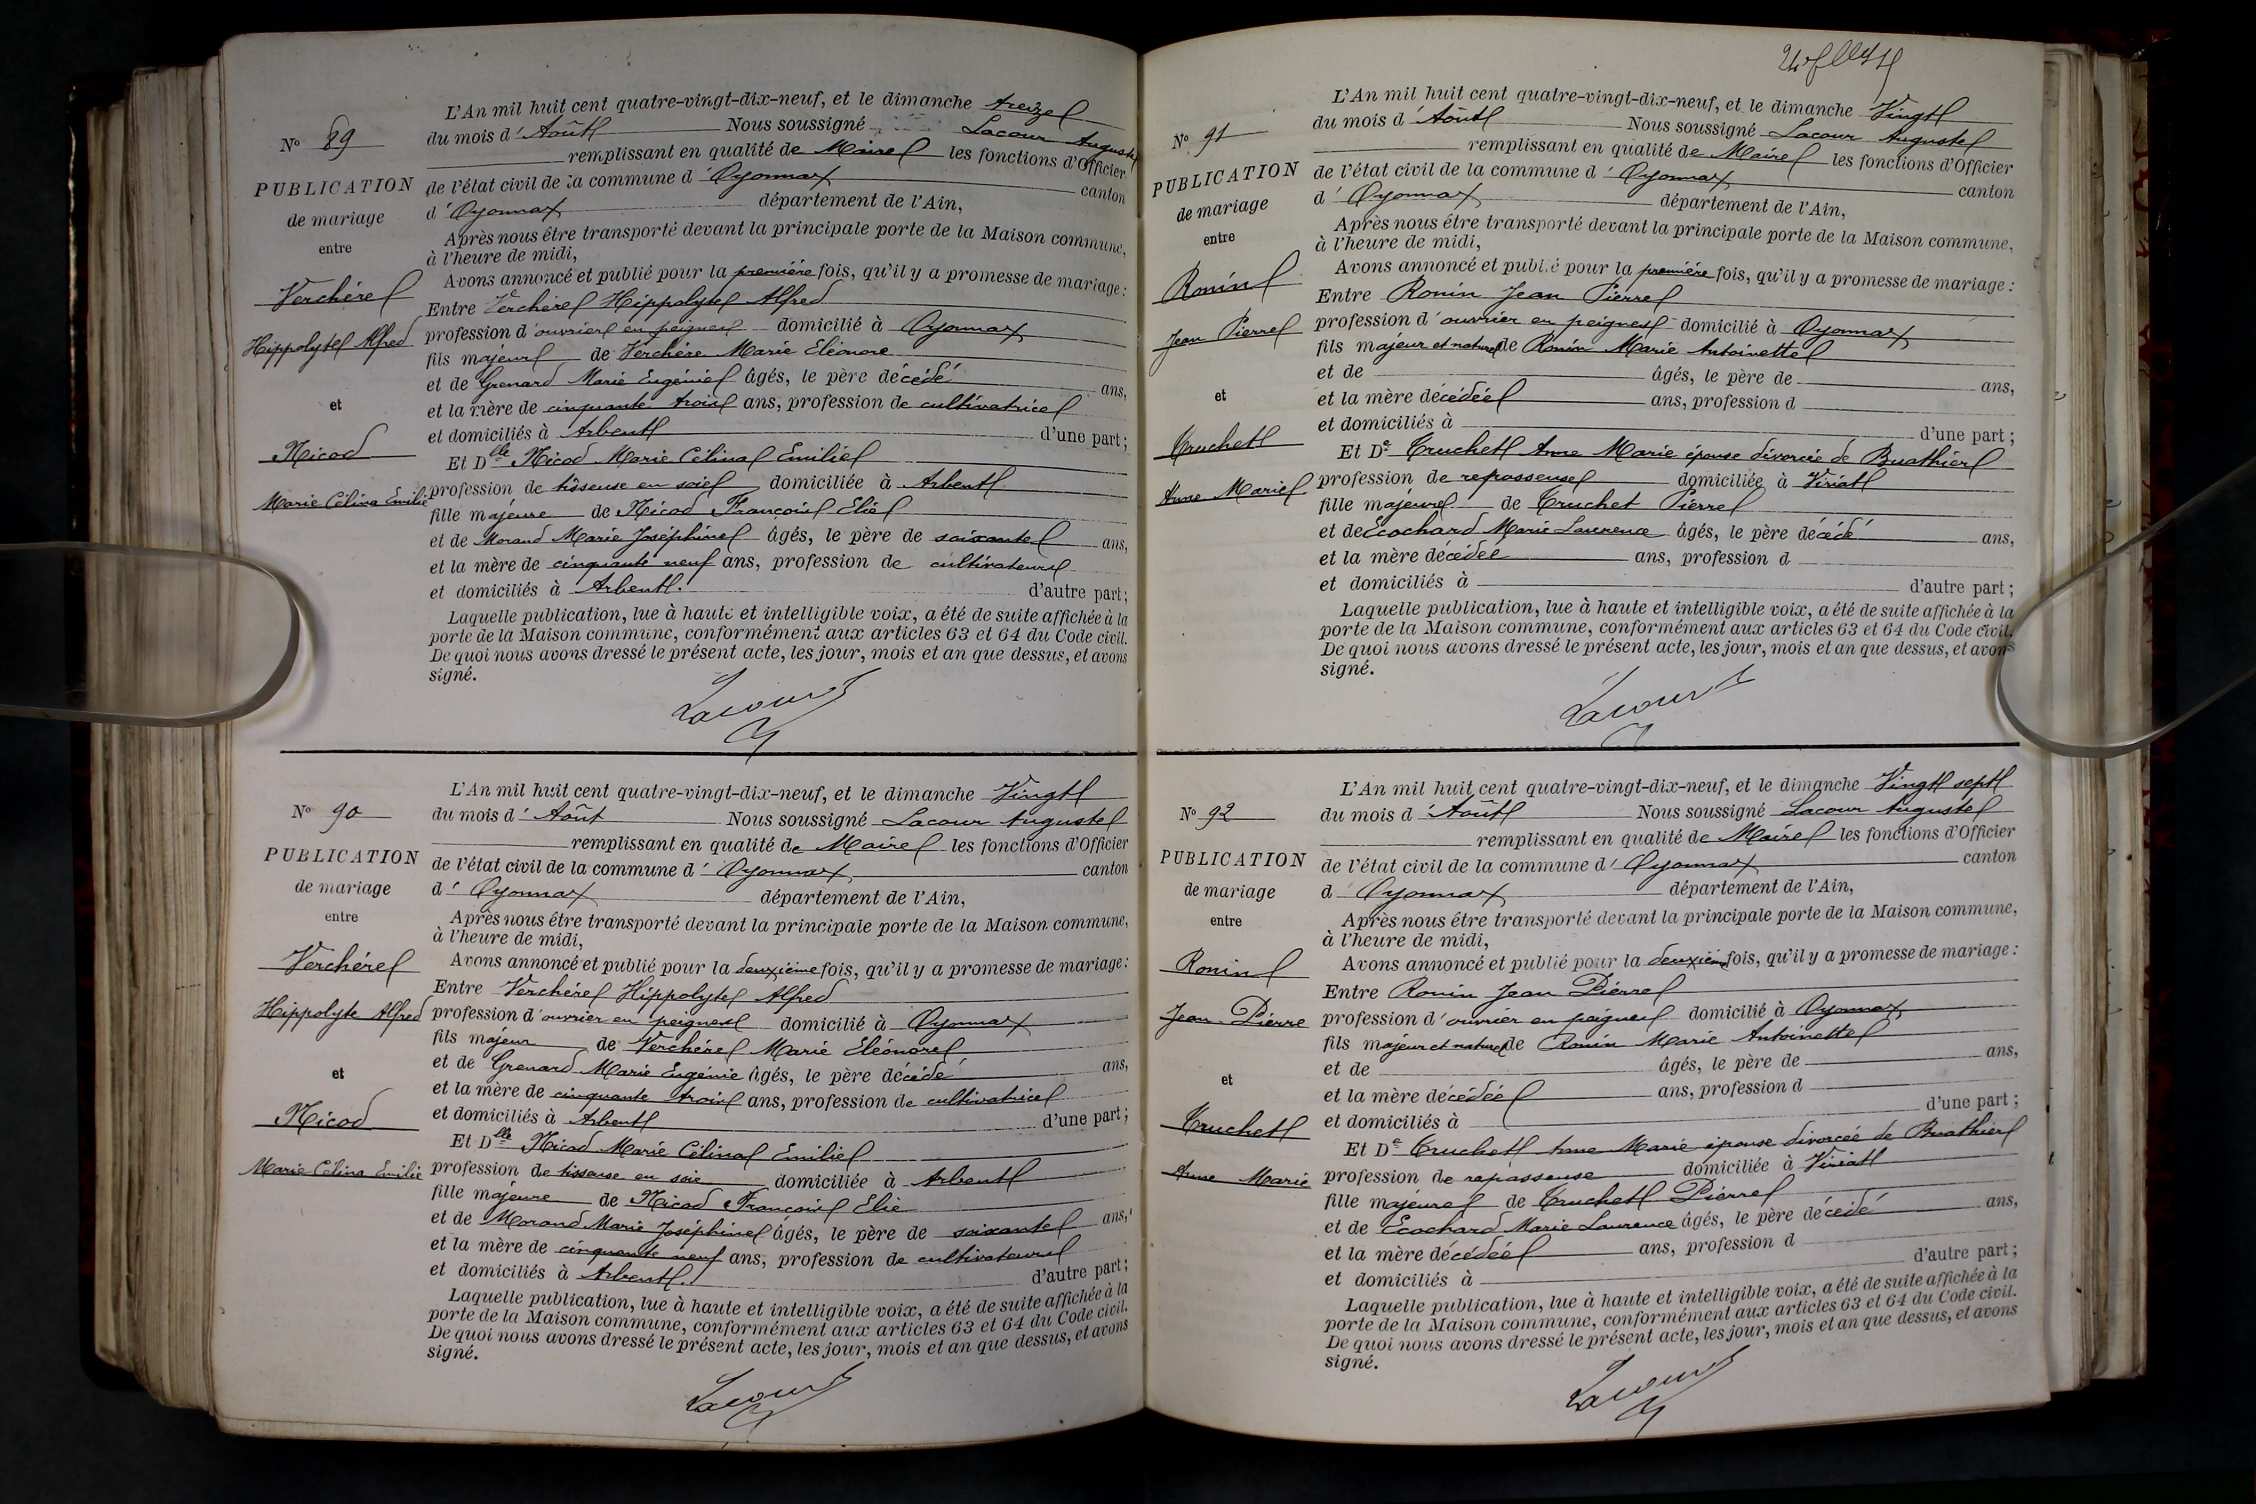 No 89
PUBLICATION
de mariage
entre
Verchère
Hippolyte Alfred
et
Nicod
Marie Célina Emilie
L'An mil huit cent quatre-vingt-dix-neuf, et le dimanche treize
du mois d'Août Nous soussigné Lacour Auguste
remplissant en qualité de Maire les fonctions d'Officier
de l'état civil de la commune d'Oyonnax canton
d'Oyonnax département de l'Ain,
Après nous être transporté devant la principale porte de la Maison commune,
à l'heure de midi,
Avons annoncé et publié pour la première fois, qu'il y a promesse de mariage :
Entre Verchère Hippolyte Alfred
profession d'ouvrier en peignes domicilié à Oyonnax
fils majeur de Verchère Marie Eléonore
et de Grenard Marie Eugénie âgés, le père décédé ans,
et la mère de cinquante trois ans, profession de cultivatrice
et domiciliés à Arbent d'une part ;
Et Dlle Nicod Marie Célina Emilie
profession de tisseuse en soie domiciliée à Arbent
fille majeure de Nicod François Elie
et de Morand Marie Joséphine âgés, le père de soixante ans,
et la mère de cinquante neuf ans, profession de cultivateurs
et domiciliés à Arbent. d'autre part ;
Laquelle publication, lue à haute et intelligible voix, a été de suite affichée à la
porte de la Maison commune, conformément aux articles 63 et 64 du Code civil.
De quoi nous avons dressé le présent acte, les jour, mois et an que dessus, et avons
signé.
Lacour
No 90
PUBLICATION
de mariage
entre
Verchère
Hippolyte Alfred
et
Nicod
Marie Célina Emilie
L'An mil huit cent quatre-vingt-dix-neuf, et le dimanche Vingt
du mois d'Août Nous soussigné Lacour Auguste
remplissant en qualité de Maire les fonctions d'Officier
de l'état civil de la commune d'Oyonnax canton
d'Oyonnax département de l'Ain,
Après nous être transporté devant la principale porte de la Maison commune,
à l'heure de midi,
Avons annoncé et publié pour la deuxième fois, qu'il y a promesse de mariage :
Entre Verchère Hippolyte Alfred
profession d'ouvrier en peignes domicilié à Oyonnax
fils majeur de Verchère Marie Eléonore
et de Grenard Marie Eugénie âgés, le père décédé ans,
et la mère de cinquante trois ans, profession de cultivatrice
et domiciliés à Arbent d'une part ;
Et Dlle Nicod Marie Célina Emilie
profession de tisseuse en soie domiciliée à Arbent
fille majeure de Nicod François Elie
et de Morand Marie Joséphine âgés, le père de soixante ans,
et la mère de cinquante neuf ans, profession de cultivateurs
et domiciliés à Arbent. d'autre part ;
Laquelle publication, lue à haute et intelligible voix, a été de suite affichée à la
porte de la Maison commune, conformément aux articles 63 et 64 du Code civil.
De quoi nous avons dressé le présent acte, les jour, mois et an que dessus, et avons
signé.
Lacour
No 91
PUBLICATION
de mariage
entre
Ronin
Jean Pierre
et
Truchet
Anne Marie
L'An mil huit cent quatre-vingt-dix-neuf, et le dimanche Vingt
du mois d'Août Nous soussigné Lacour Auguste
remplissant en qualité de Maire les fonctions d'Officier
de l'état civil de la commune d'Oyonnax canton
d'Oyonnax département de l'Ain,
Après nous être transporté devant la principale porte de la Maison commune,
à l'heure de midi,
Avons annoncé et publié pour la première fois, qu'il y a promesse de mariage :
Entre Ronin Jean Pierre
profession d'ouvrier en peignes domicilié à Oyonnax
fils majeur et naturel de Ronin Marie Antoinette
et de âgés, le père de ans,
et la mère décédée ans, profession d
et domiciliés à d'une part ;
Et De Truchet Anne Marie épouse divorcée de Buathier
profession de repasseuse domiciliée à Viriat
fille majeure de Truchet Pierre
et de Ecochard Marie Laurence âgés, le père décédé ans,
et la mère décédée ans, profession d
et domiciliés à d'autre part ;
Laquelle publication, lue à haute et intelligible voix, a été de suite affichée à la
porte de la Maison commune, conformément aux articles 63 et 64 du Code civil.
De quoi nous avons dressé le présent acte, les jour, mois et an que dessus, et avons
signé.
Lacour
No 92
PUBLICATION
de mariage
entre
Ronin
Jean Pierre
et
Truchet
Anne Marie
L'An mil huit cent quatre-vingt-dix-neuf, et le dimanche Vingt sept
du mois d'Août Nous soussigné Lacour Auguste
remplissant en qualité de Maire les fonctions d'Officier
de l'état civil de la commune d'Oyonnax canton
d Oyonnax département de l'Ain,
Après nous être transporté devant la principale porte de la Maison commune,
à l'heure de midi,
Avons annoncé et publié pour la deuxième fois, qu'il y a promesse de mariage :
Entre Ronin Jean Pierre
profession d'ouvrier en peignes domicilié à Oyonnax
fils majeur et naturel de Ronin Marie Antoinette
et de âgés, le père de ans,
et la mère décédée ans, profession d
et domiciliés à d'une part ;
Et De Truchet Anne Marie épouse divorcée de Buathier
profession de repasseuse domiciliée à Viriat
fille majeure de Truchet Pierre
et de Ecochard Marie Laurence âgés, le père décédé ans,
et la mère décédée ans, profession d
et domiciliés à d'autre part ;
Laquelle publication, lue à haute et intelligible voix, a été de suite affichée à la
porte de la Maison commune, conformément aux articles 63 et 64 du Code civil.
De quoi nous avons dressé le présent acte, les jour, mois et an que dessus, et avons
signé.
Lacour